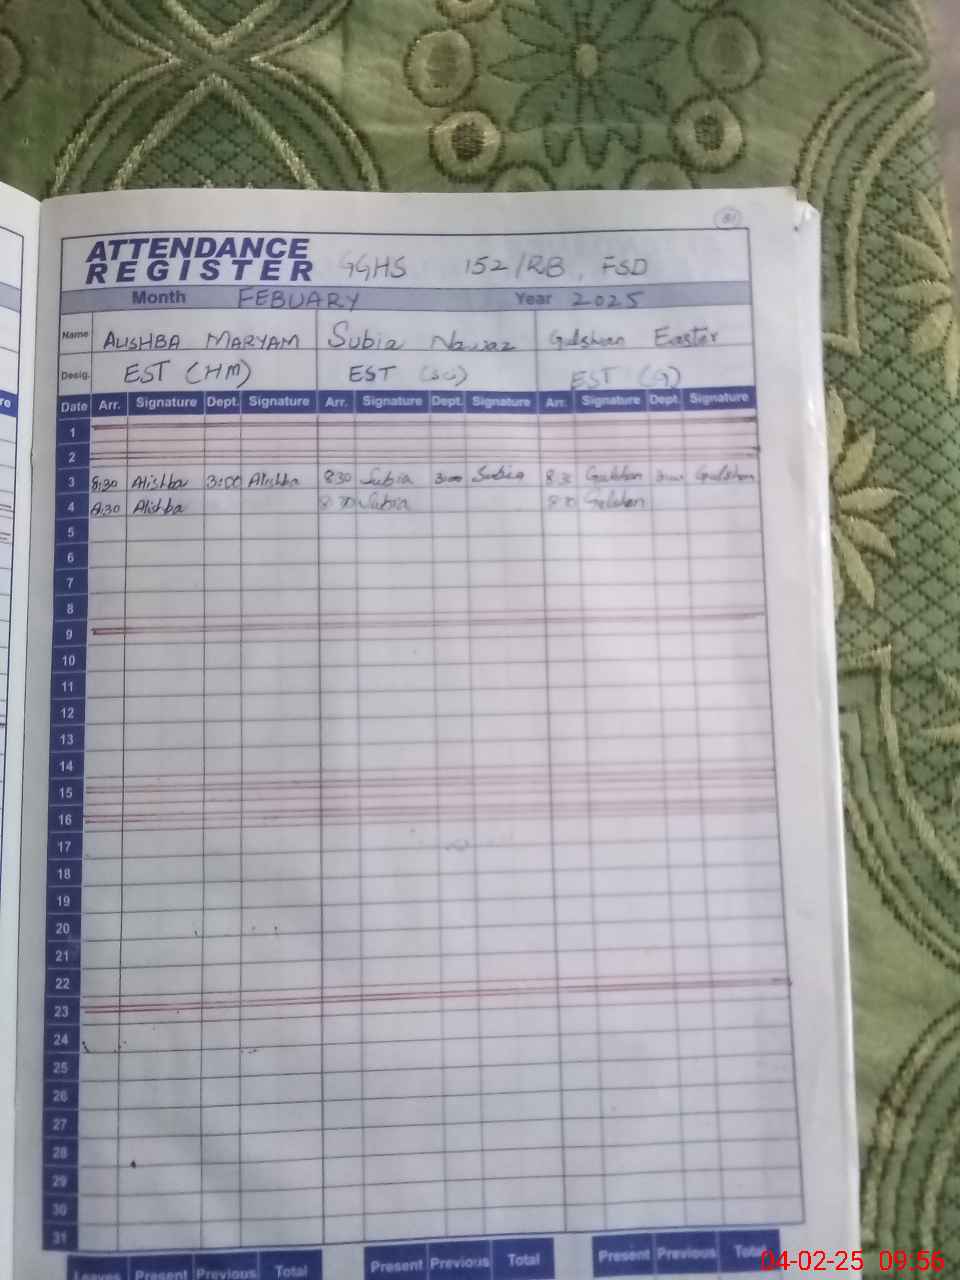 31
ATTENDANCE
REGISTER GGHS 152/RB, FSD
Month FEBUARY Year 2025
Name ALISHBA MARYAM Subia Nawaz Gulshan Easter
Desig. EST (HM) EST (SC) EST (G)
re
Date Arr. Signature Dept. Signature Arr. Signature Dept. Signature Arr. Signature Dept. Signature
1
2
3 8:30 Alishba 3:00 Alishba 8 30 Subia 3:00 Subia 8 3 Gulshan 3:00 Gulshan
4 8:30 Alishba 8 30 Subia Gulshan
5
6
7
8
9
10
11
12
13
14
15
16
17
18
19
20
21
22
23
24
25
26
27
28
29
30
31
Leaves Present Previous Total Present Previous Total Present Previous Total
04-02-25 09:56